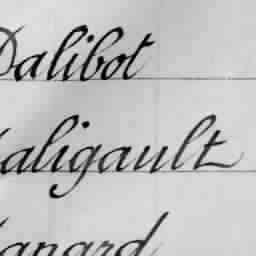 Dalibot
aligault
anard